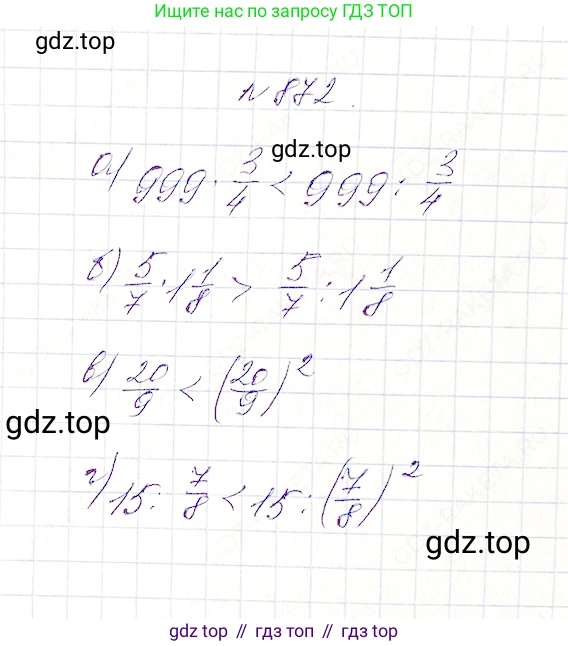 Ищите нас по запросу ГДЗ ТОП
gdz.top
№ 872.
gdz.top
а) 999 · 3/4 < 999 : 3/4
б) 5/7 · 1 1/8 > 5/7 : 1 1/8
в) 20/9 < (20/9)²
gdz.top
г) 15 : 7/8 < 15 : (7/8)²
gdz.top
gdz top // гдз топ // gdz top